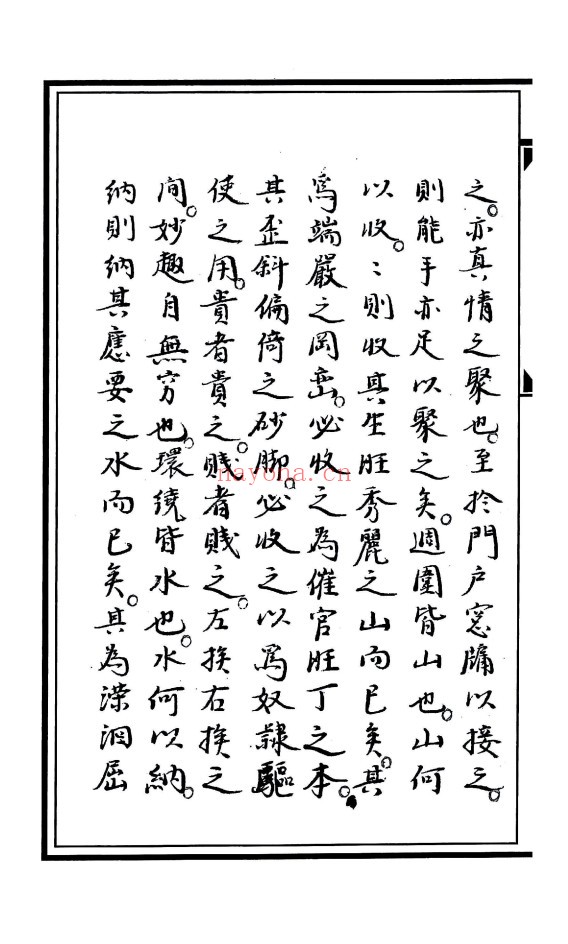 之。亦真情之聚也。至於門户窓牖以接之。
則能手亦足以聚之矣。週圍皆山也。山何
以收。〻則收其生旺秀麗之山而已矣。其
為端嚴之岡巒。必收之為催官旺丁之本。
其歪斜偏倚之砂脚。必收之以為奴隸驅
使之用。貴者貴之。賤者賤之。左挨右挨之
间。妙趣自無穷也。環繞皆水也。水何以納。
納則納其應要之水而已矣。其為濚洄屈
nayona.cn